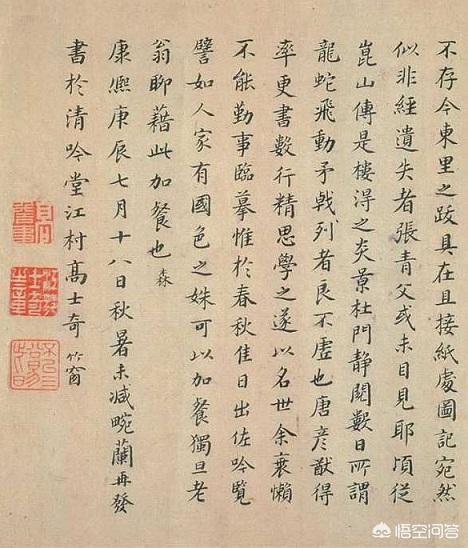 不存今東里之跋具在且接紙處圖記宛然
似非經遺失者張青父或未目見耶頃從
崑山傳是樓淂之炎景杜門静閱數日所謂
龍蛇飛動矛戟列者良不虛也唐彦猷得
率更書數行精思學之遂以名世余衰懶
不能勤事臨摹惟於春秋佳日出佐吟覽
譬如人家有國色之姝可以加餐獨旦老
翁聊藉此加餐也 森
康熈庚辰七月十八日秋暑未減畹蘭再發
書於清吟堂江村髙士奇 竹窗
悟空问答